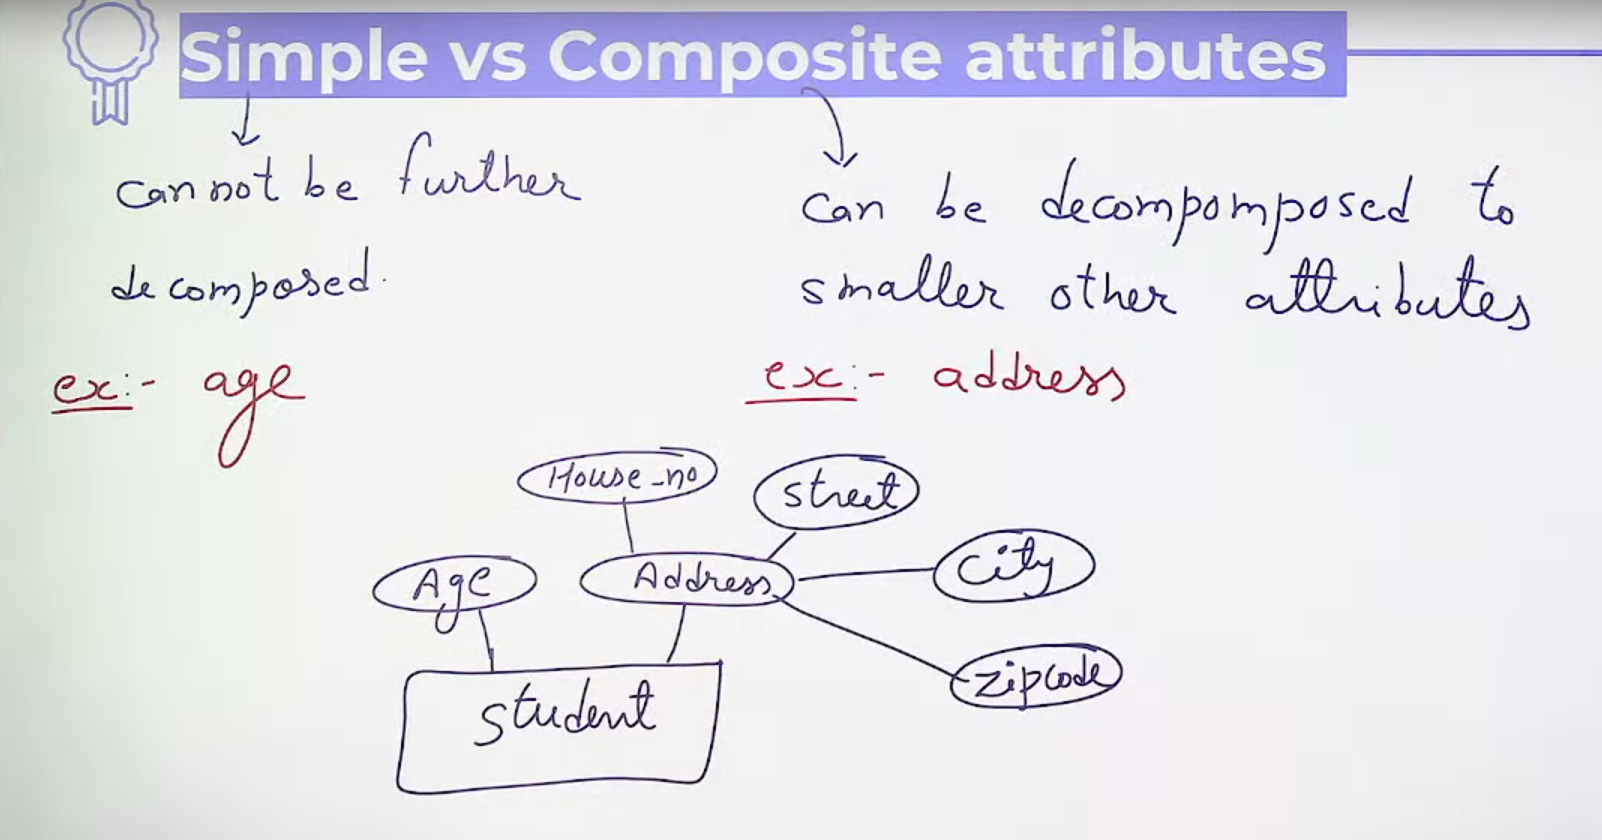 Simple vs Composite attributes
cannot be further
decomposed.
ex:- age
can be decompomposed to
smaller other attributes
ex:- address
House_no
street
Age
Address
city
zipcode
student